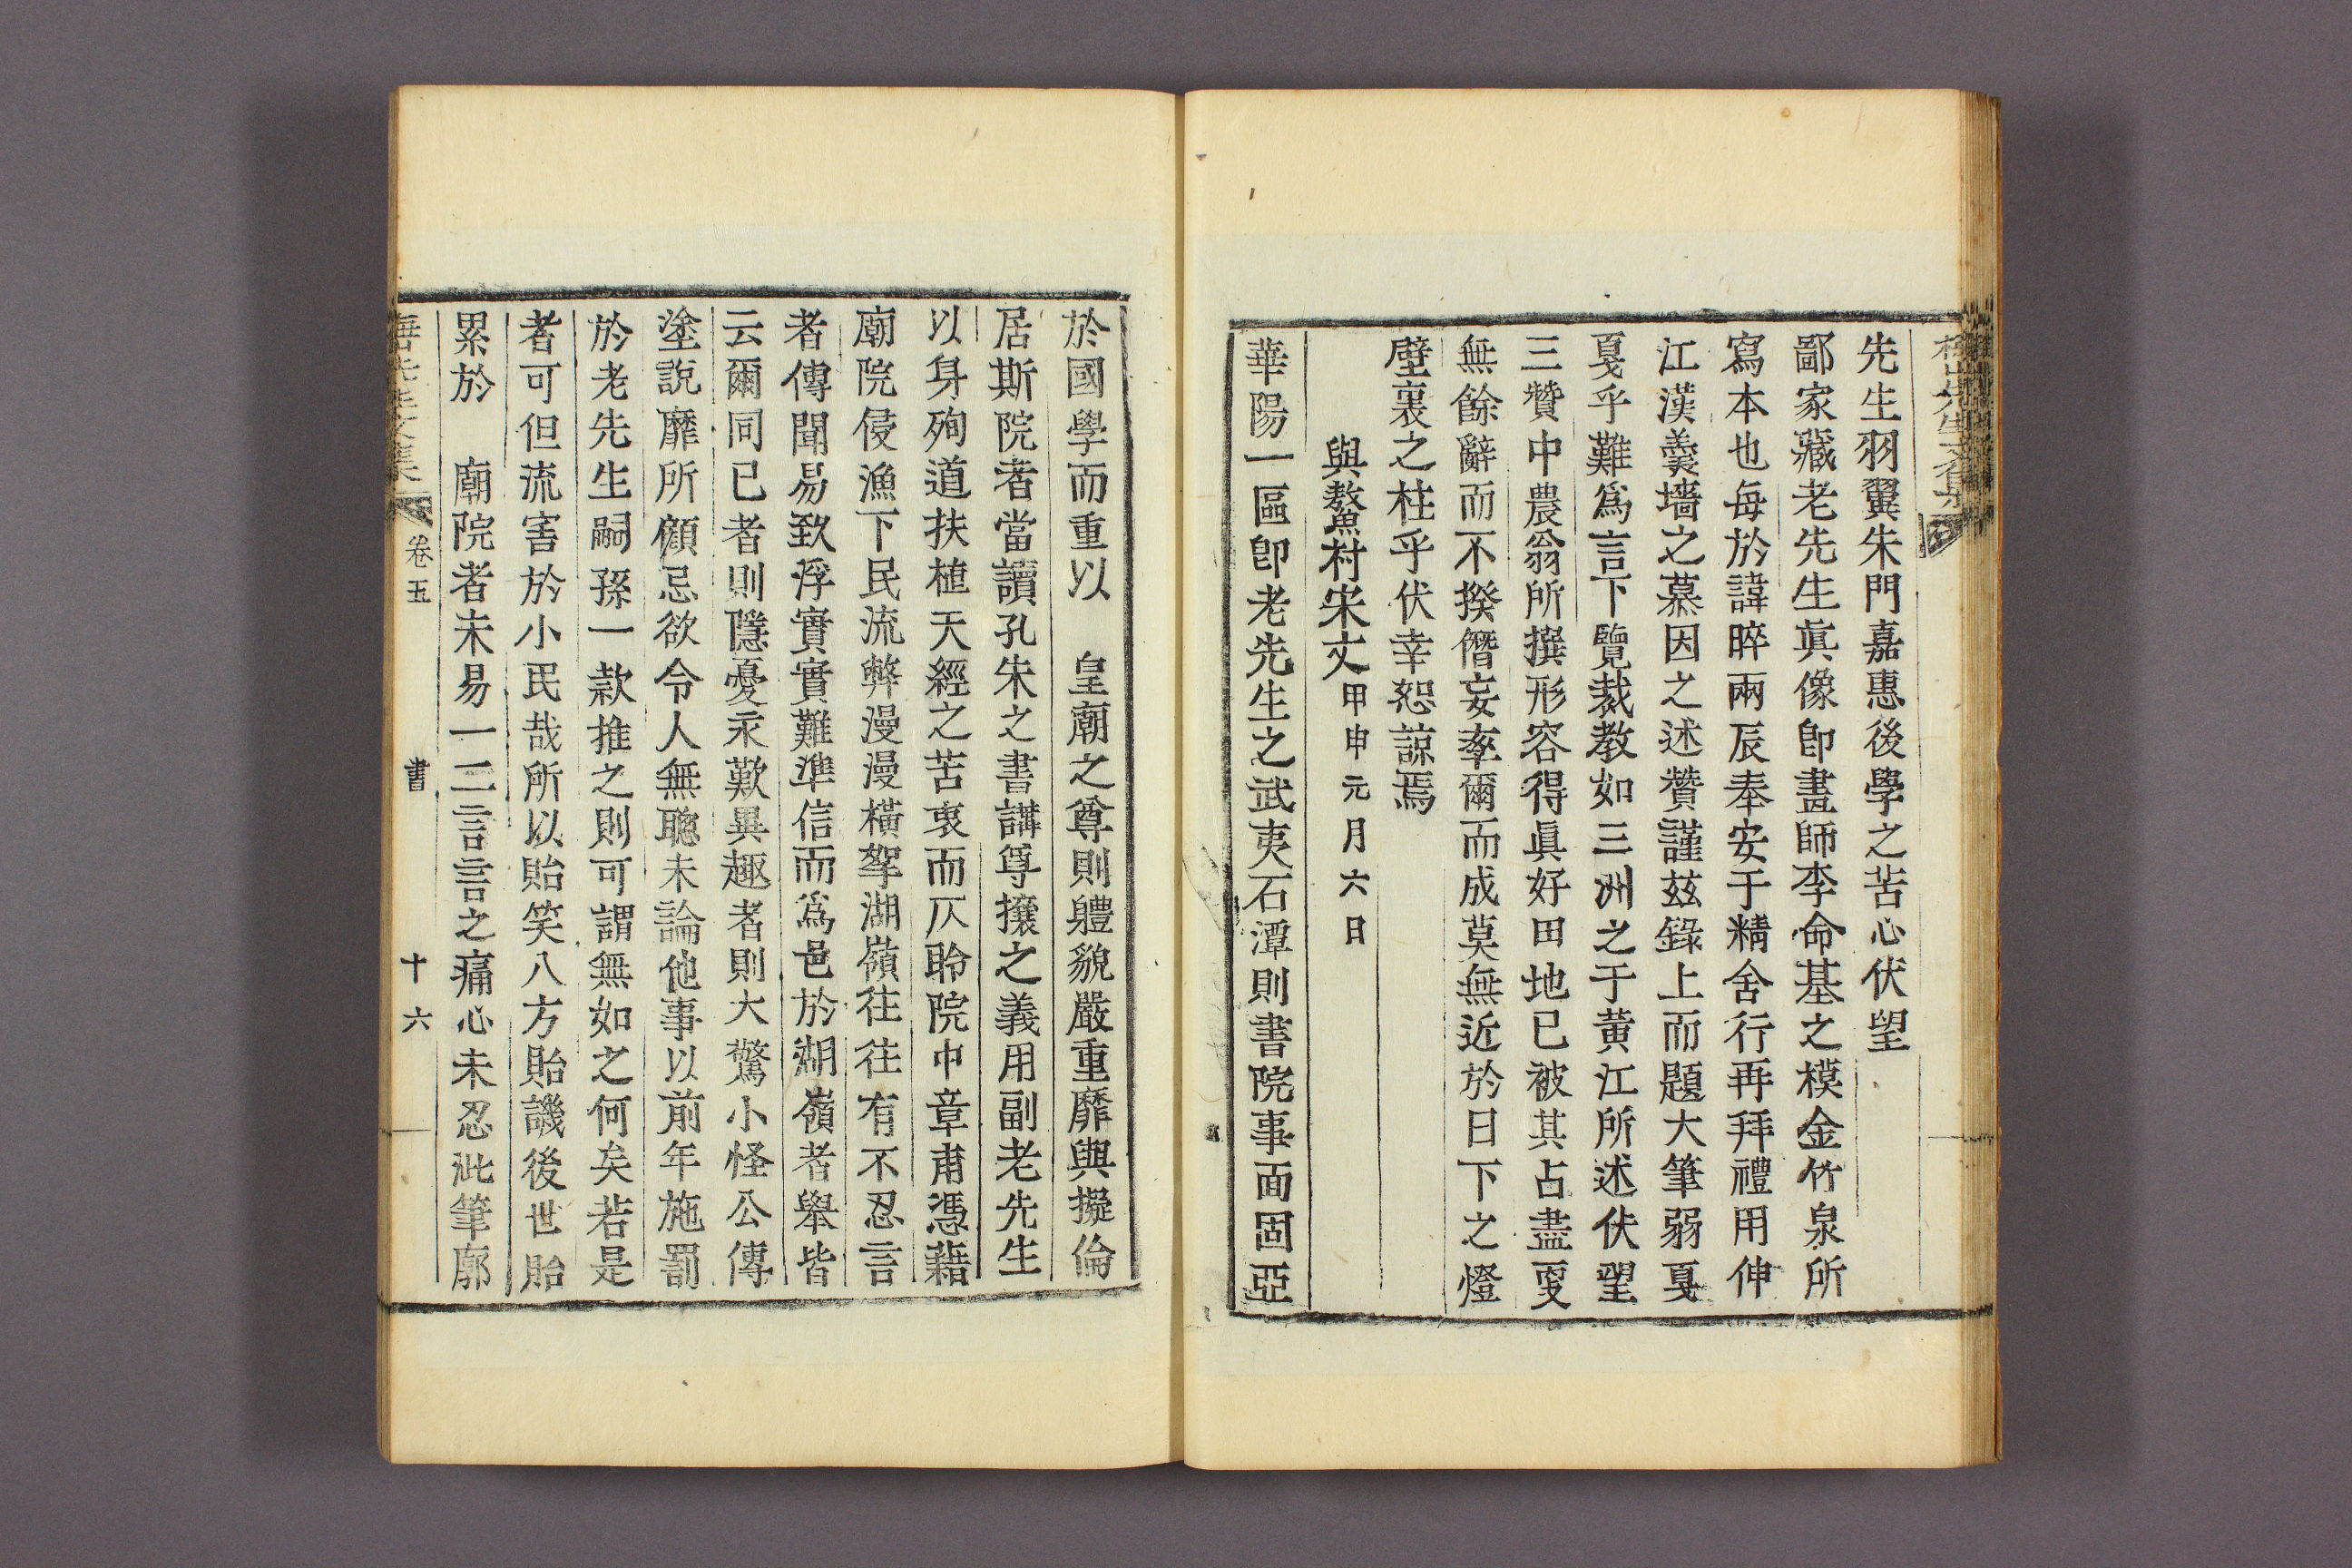 先生羽翼朱門嘉惠後學之苦心伏望
鄙家藏老先生眞像卽畫師李命基之模金竹泉所
寫本也每於諱晬兩辰奉安于精舍行再拜禮用伸
江漢羹墻之慕因之述贊謹玆錄上而題大筆弱戛
戛乎難爲言下覽裁敎如三洲之于黄江所述伏望
三贊中農翁所撰形容得眞好田地已被其占盡更
無餘辭而不揆僭妄率爾而成莫無近於日下之燈
壁裏之柱乎伏幸恕諒焉
與鰲村宋丈甲申元月六日
華陽一區卽老先生之武夷石潭則書院事面固亞
於國學而重以 皇廟之尊則軆貌嚴重靡與擬倫
居斯院者當讀孔朱之書講尊攘之義用副老先生
以身殉道扶植天經之苦衷而仄聆院中章甫憑藉
廟院侵漁下民流弊漫漫橫挐湖嶺往往有不忍言
者傳聞易致浮實實難準信而爲邑於湖嶺者擧皆
云爾同已者則隱憂永歎異趣者則大驚小怪公傳
塗說靡所顧忌欲令人無聰未論他事以前年施罰
於老先生嗣孫一款推之則可謂無如之何矣若是
者可但流害於小民哉所以貽笑八方貽譏後世貽
累於 廟院者未易一二言言之痛心未忍泚筆廓
卷五
書
十六